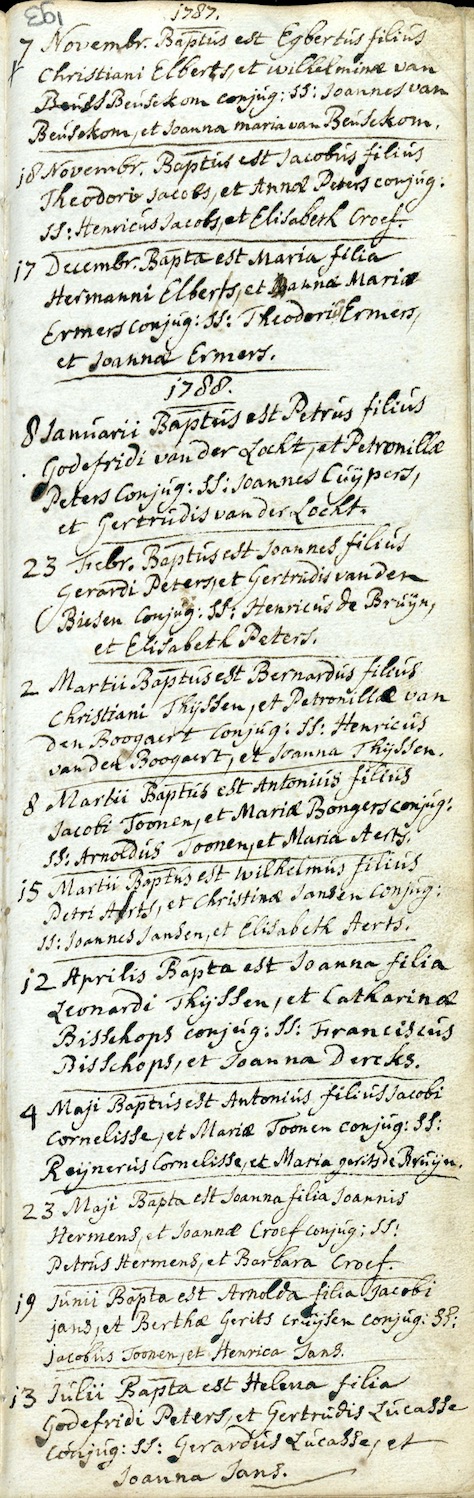 193
1787.
7 Novembr. Baptus est Egbertus filius
Christiani Elberts, et Wilhelminæ van
Beusekom conjug: SS: Joannes van
Beusekom, et Joanna maria van Beusekom.
18 Novembr. Baptus est Jacobus filius
Theodori Jacobs, et Annæ Peters conjug:
SS: Henricus Jacobs, et Elisabeth Croef.
17 Decembr. Bapta est Maria filia
Hermanni Elberts, et Joannæ Mariæ
Ermers conjug: SS: Theodorus Ermers,
et Joanna Ermers.
1788.
8 Januarii Baptus est Petrus filius
Godefridi van der Locht, et Petronillæ
Peters Conjug: SS: Joannes Cuÿpers,
et Gertrudis van der Locht.
23 Febr. Baptus est Joannes filius
Gerardi Peters, et Gertrudis van den
Biesen Conjug: SS: Henricus de Bruÿn,
et Elisabeth Peters.
2 Martii Baptus est Bernardus filius
Christiani Thijssen, et Petronillæ van
den Boogaert conjug: SS: Henricus
van den Boogaert, et Joanna Thijssen.
8 Martii Baptus est Antonius filius
Jacobi Toonen, et Mariæ Bongers conjug:
SS: Arnoldus Toonen, et Maria Aerts.
15 Martii Baptus est Wilhelmus filius
Petri Aerts, et Christinæ Jansen Conjug:
SS: Joannes Jansen, et Elisabeth Aerts.
12 Aprilis Bapta est Joanna filia
Leonardi Thijssen, et Catharinæ
Bisschops conjug: SS: Franciscus
Bisschops, et Joanna Dercks.
4 Maji Baptus est Antonius filius Jacobi
Cornelisse, et Mariæ Toonen conjug: SS:
Reijnerus Cornelisse, et Maria gerits de Bruijn.
23 Maji Bapta est Joanna filia Joannis
Hermens, et Joannæ Croef conjug: SS:
Petrus Hermens, et Barbara Croef.
19 Junii Bapta est Arnolda filia Jacobi
jans, et Berthæ Gerits cruijsen conjug: SS:
Jacobus Toonen, et Henrica Jans.
13 Julii Bapta est Helena filia
Godefridi Peters, et Gertrudis Lucasse
Conjug: SS: Gerardus Lucasse, et
Joanna Jans.